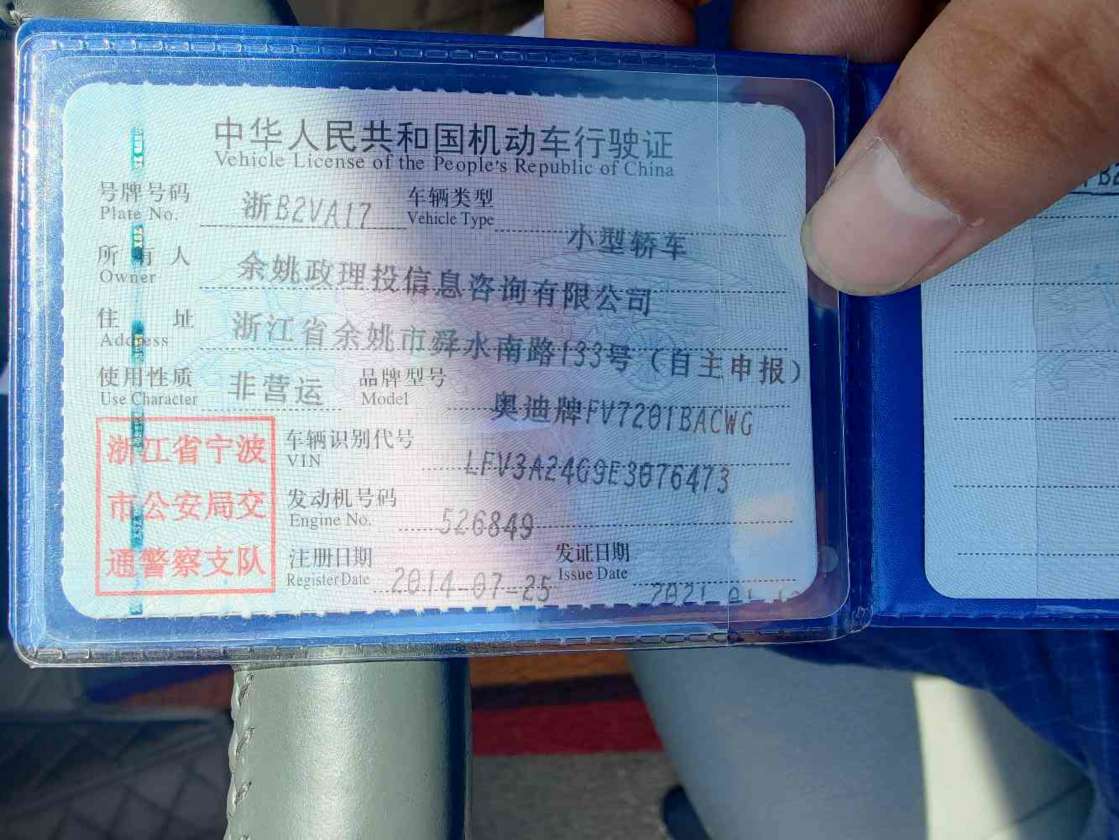 中华人民共和国机动车行驶证
Vehicle License of the People's Republic of China
号牌号码 浙B2VA17 车辆类型 小型轿车
Plate No. Vehicle Type
所有人 余姚政理投信息咨询有限公司
Owner
住址 浙江省余姚市舜水南路133号（自主申报）
Address
使用性质 非营运 品牌型号 奥迪牌FV7201BACWG
Use Character Model
浙江省宁波
市公安局交
通警察支队
车辆识别代号 LFV3A24G9E3076473
VIN
发动机号码 526849
Engine No.
注册日期 2014-07-25 发证日期
Register Date Issue Date